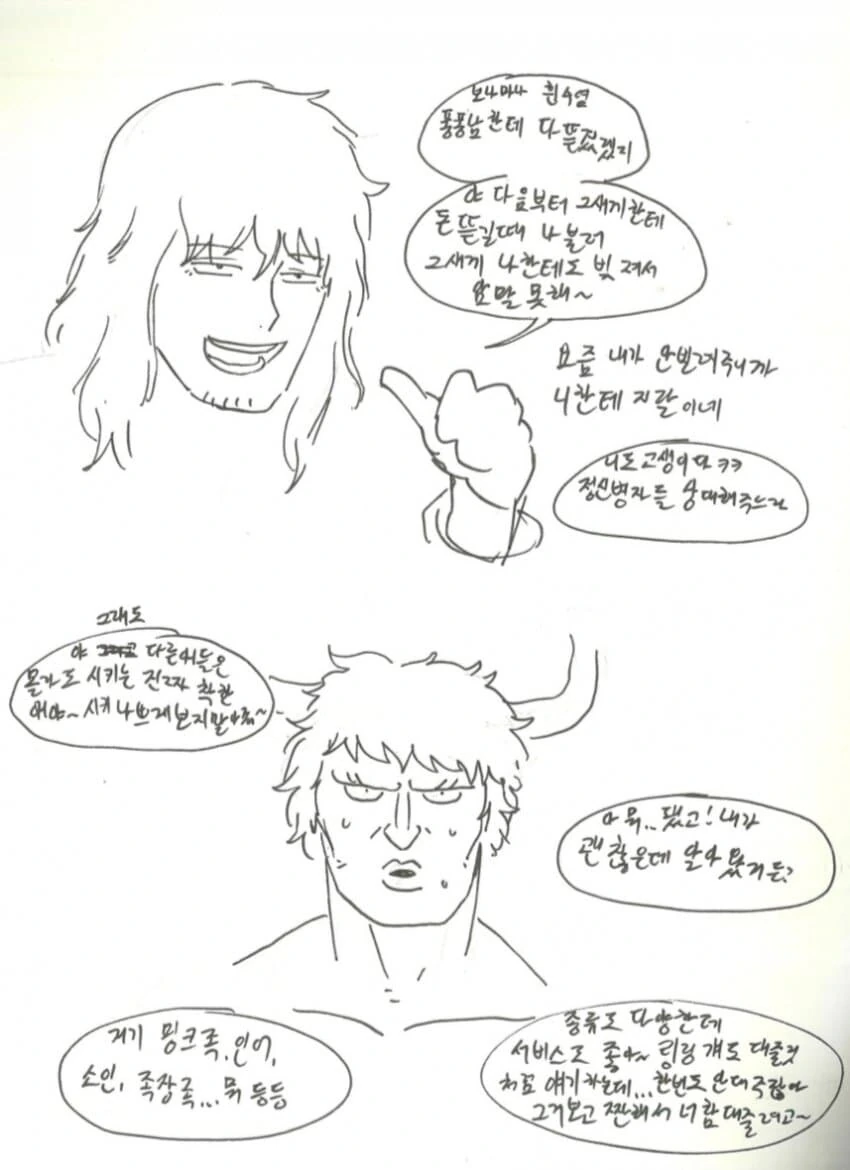 보나마나 흰수염
퐁퐁남한테 다 뜯겼겠지
야 다음부터 그새끼한테
돈 뜯길때 나 불러
그새끼 나한테도 빚 져서
암말 못해~
요즘 내가 안빌려주니까
니한테 지랄이네
니도 고생이다 ㅋㅋ
정신병자들 상대해주느라
그래도
야 다른애들은
몰라도 시키는 진짜 착한
애야~ 시키 나쁘게 보지말아줘~
아 뭐.. 됐고! 내가
괜찮은데 알아 왔거든?
거기 밍크족, 인어,
소인, 족장족... 뭐 등등
종류도 다양한데
서비스도 좋아~ 링링 걔도 대줄것
처럼 얘기하는데... 한번도 안대주잖아
그거보고 짠해서 너 함 대줄려고~